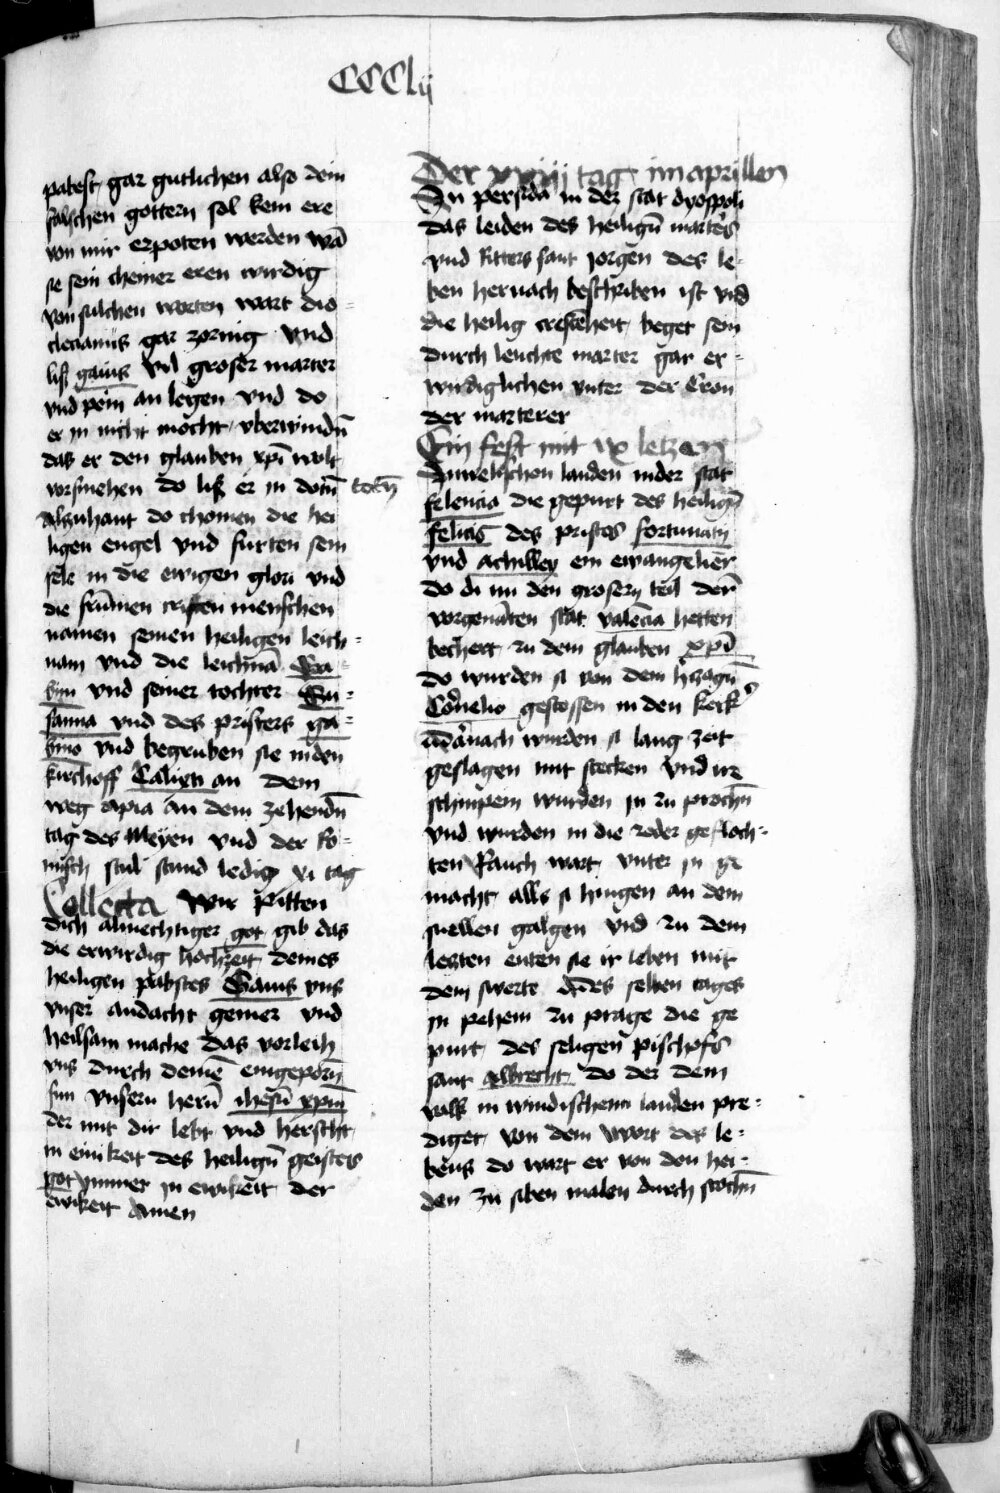 CCClij
pabest gar gutlichen also dein
falschen gottern sol kein ere
von mir erpoten werden wā
se sein chemer eren wirdig
von sulchen worten wart dio=
clecianus gar zornig vnd
lis gaius vil groser marter
vnd pein an legen vnd do
er in nicht mocht vberwindn̄
das er den glauben xp̄i wolt
vorsmehen do lis er in dotn̄
Alzuhant do chomen die hei
ligen engel vnd furten sein
sele in die ewigen glori vnd
die frūmen cristen menschen
namen seinen heiligen leich=
nam vnd die leichnā Ga=
binii vnd seiner tochter Su=
sanna vnd des pristers ga=
bino vnd begruben sie in den
kirchoff Calixti an dem
weg apia an dem zehendn̄
tag des Meyen vnd der Ro=
misch stul stund ledig xi tag
Collecta Wir pitten
dich almechtiger got gib das
die erwirdig hochzeit deines
heiligen pabstes Gaius vns
vnser andacht gemer vnd
heilsam mache das vorleih
vns durch deinē eingeporn̄
sun vnsern hern̄ ihesū xp̄m
der mit dir lebt vnd herscht
in einikeit des heilign̄ geistes
got ymmer in ewikeit der
ewikeit Amen
Der xxiiij tag im aprillen
In persida in der stat dyospoli
das leiden des heilign̄ marters
vnd Ritters sant jorgen des le=
ben hernach beschriben ist vnd
die heilig cristēheit beget sein
durch leuchte marter gar er=
wirdiglichen vnter der Cron
der marterer
Ein fest mit ix letzen
In welischen landen in der stat
felencia die gepurt des heilign̄
felicis des pristes fortunati
vnd achilley ein ewangelier
do di nu den grosern teil der
vorgenāten stat valēcia hetten
bechert zu dem glauben xp̄i
do wurden si von dem herzogn̄
Cornelio gestossen in den kerk̓
darnach wurden si lang zeit
geslagen mit stecken vnd ire
schinpein wurden in zu prochn̄
vnd wurden in die reder gefloch=
ten Rauch wart vnter in ge
macht alls si hingen an dem
snellen galgen vnd zu dem
letzten enten sie ir leben mit
dem swerte Des selben tages
in pehem zu prage die ge
purt des seligen pischofs
sant Albrecht do der dem
volk in windischenn landen pre=
diget von dem wort des le=
bens do wart er von den hei=
den zu siben malen durch stochn̄